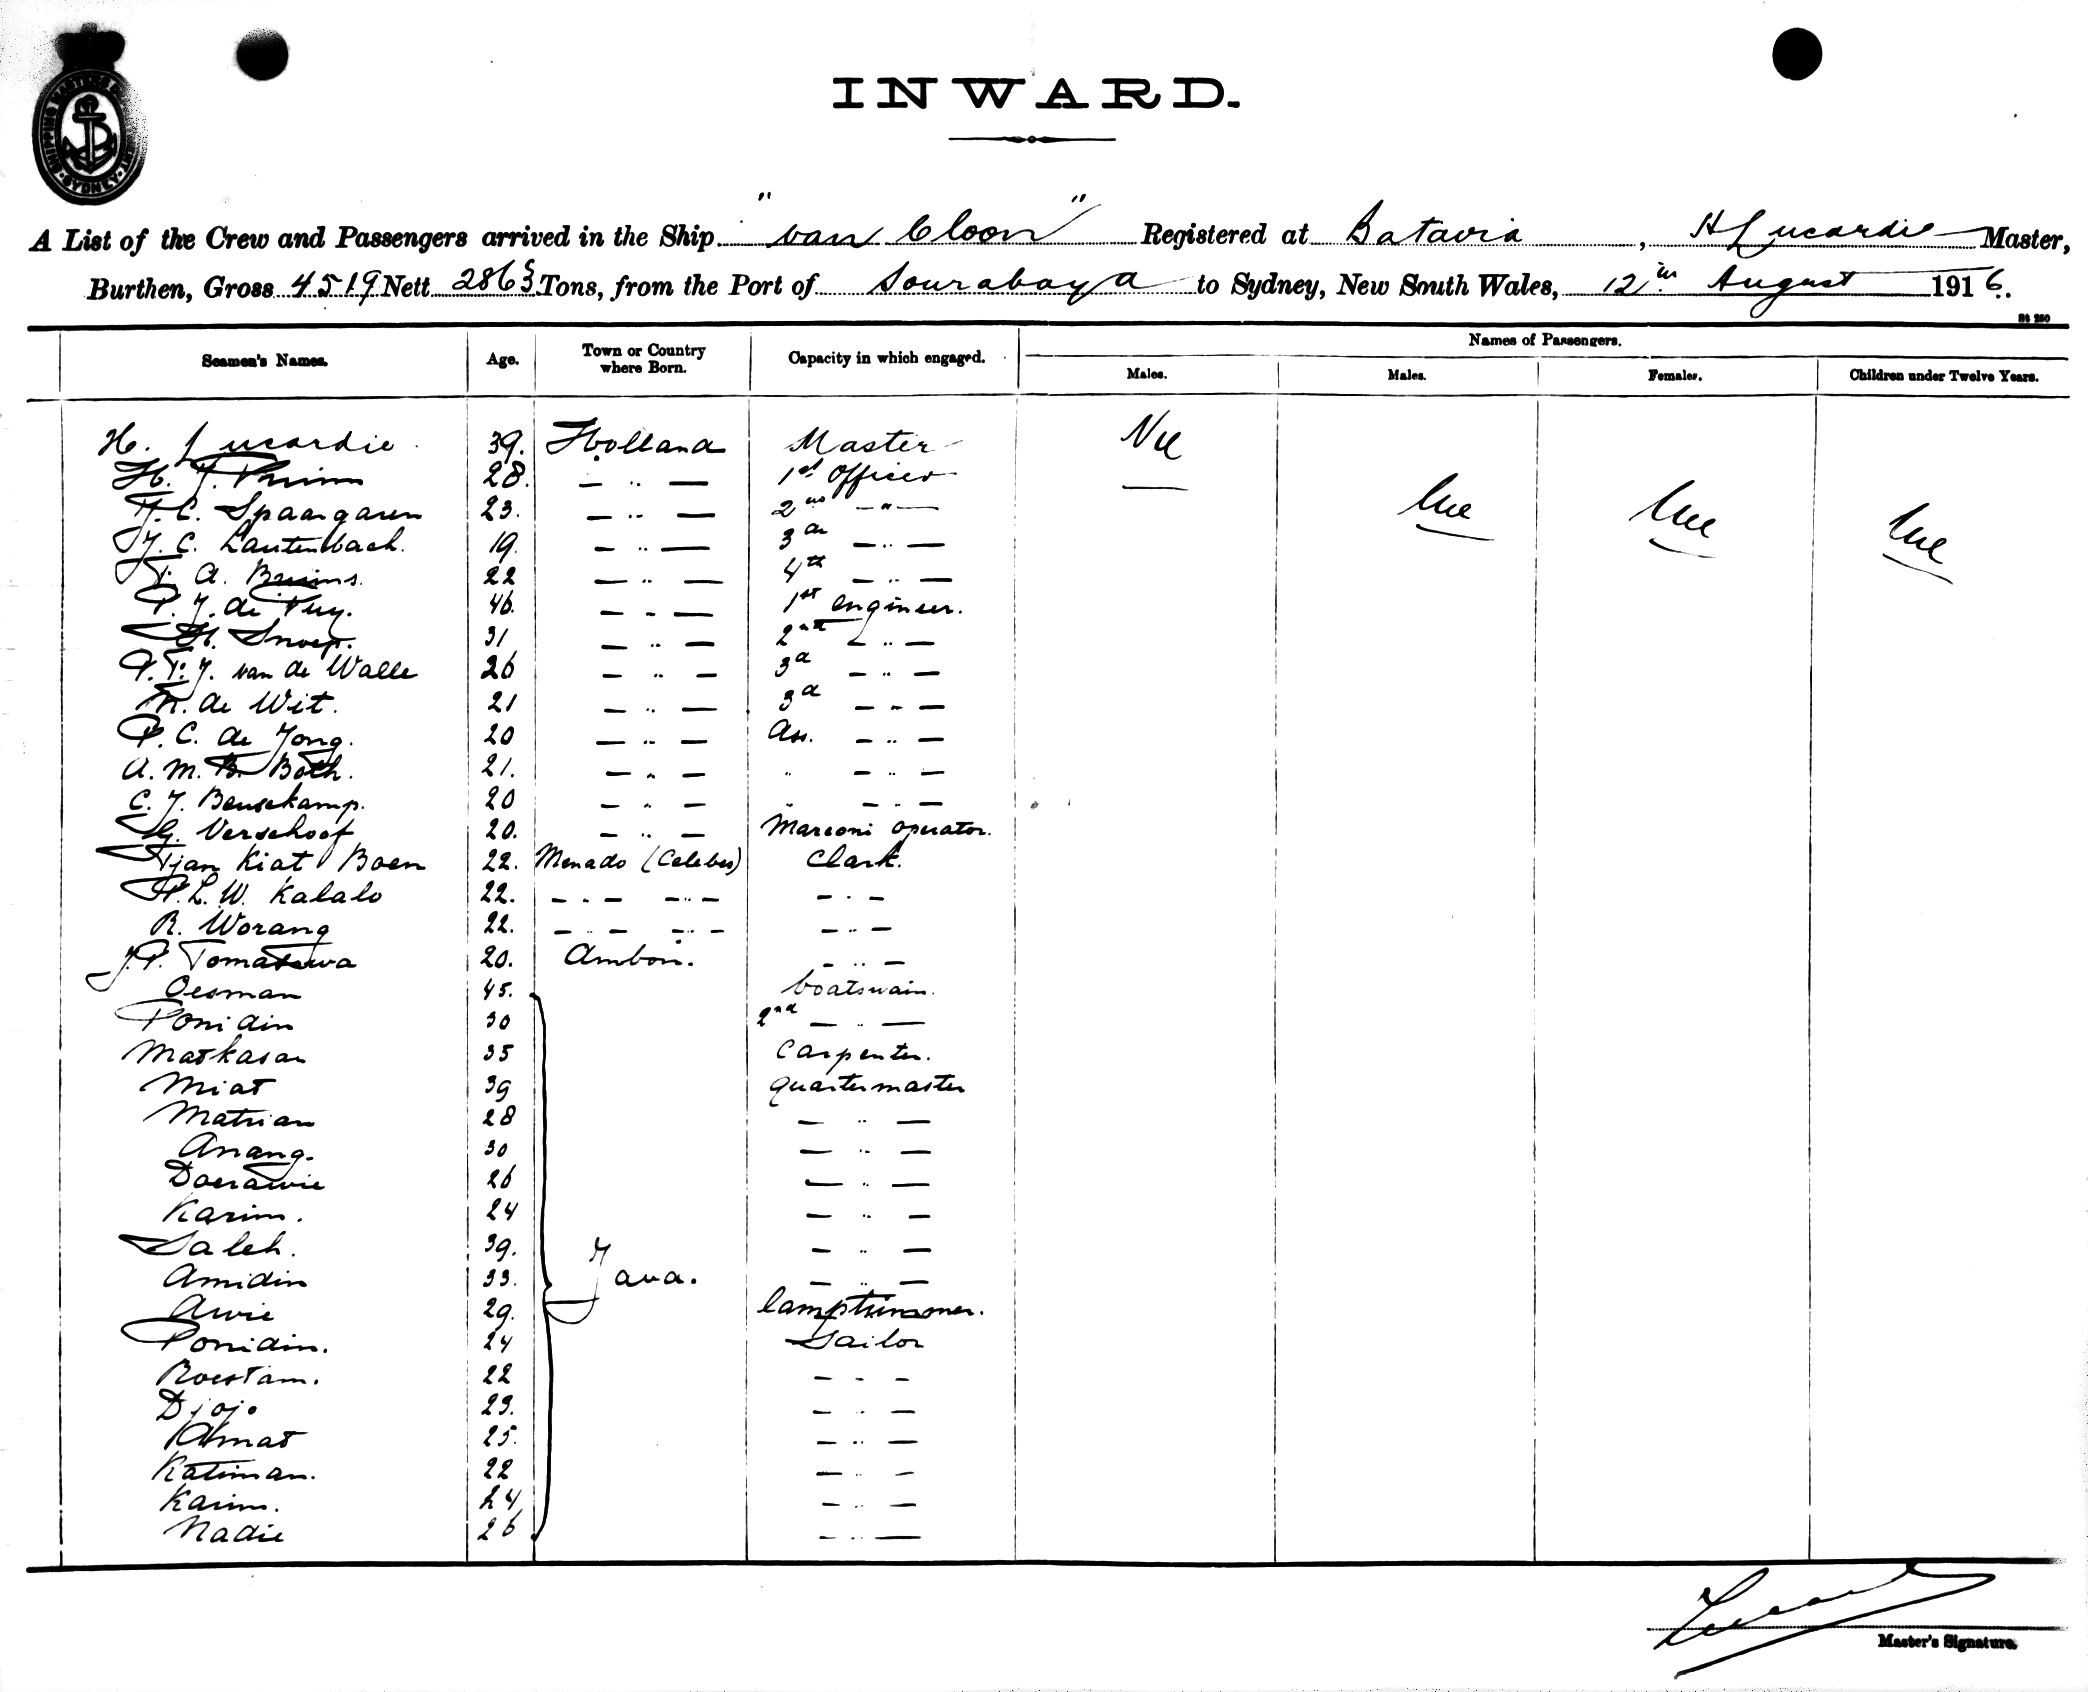 SHIPPING MASTER'S
SYDNEY
INWARD.
A List of the Crew and Passengers arrived in the Ship "van Cloon" Registered at Batavia, H Lucardie Master,
Burthen, Gross 4519 Nett 2863 Tons, from the Port of Sourabaya to Sydney, New South Wales, 12th August 1916.
St 250
Seamen's Names. Age. Town or Country where Born. Capacity in which engaged. Names of Passengers.
Males. Males. Females. Children under Twelve Years.
H. Lucardie 39. Holland Master Nil
H. J. 28. — " — 1st Officer
C. Spaargaren 23. — " — 2nd — " — Nil Nil Nil
J. C. Lautenbach. 19. — " — 3d — " —
A. Bruins. 22 — " — 4th — " —
P. J. de Puy. 46. — " — 1st engineer.
H. Snoep. 31 — " — 2nd — " —
P. P. J. van de Walle 26 — " — 3d — " —
K. de Wit. 21 — " — 3d — " —
P. C. de Jong. 20 — " — Ass. — " —
A. M. B. Both. 21. — " — " — " —
C. J. Beusekamp. 20 — " — " — " —
G. Verschoof 20. — " — Marconi operator.
Tjan Kiat Boen 22. Menado (Celebes) Clark.
P. L. W. Kalalo 22. — " — — " — — " —
R. Worang 22. — " — — " — — " —
J. P. Tomasowa 20. Ambon. — " —
Oesman 45. boatswain.
Ponidin 30 2nd — " —
Matkasan 35 Carpenter.
Miat 39 quartermaster
Matrian 28 — " —
Anang. 30 — " —
Doerawie 26 — " —
Karim. 24 — " —
Saleh. 39. — " —
Amidin 33. Java. — " —
Awie 29. lamptrimmer.
Ponidin. 24 Sailor
Roestam. 22 — " —
Djojo 23. — " —
Amat 25. — " —
Katiman. 22 — " —
Karim. 24 — " —
Nadie 26 — " —
Master's Signature.